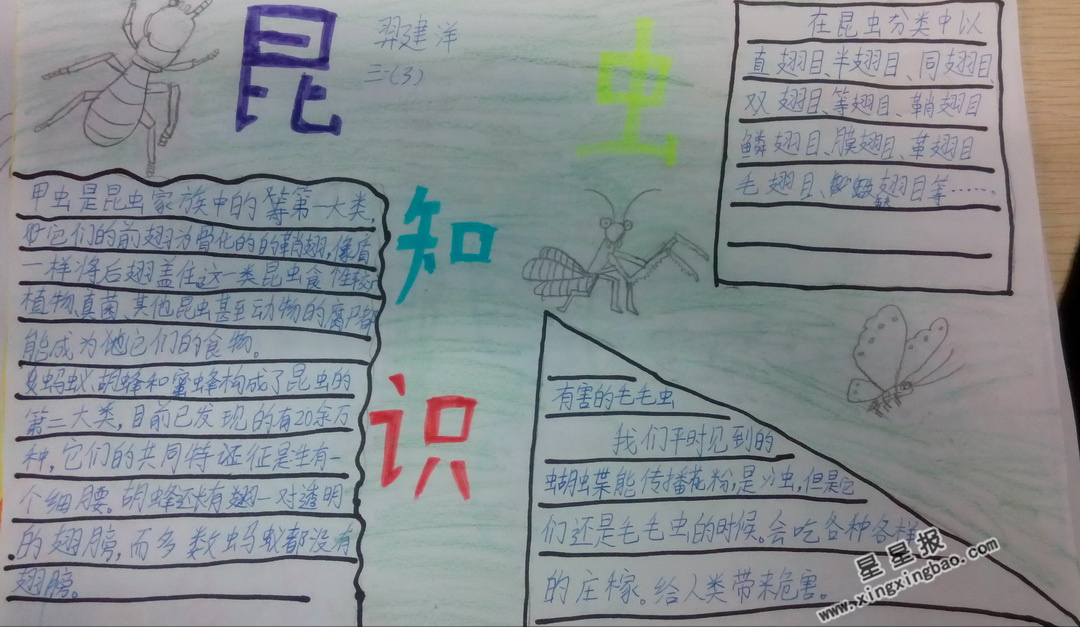 昆
虫
知
识
羿建洋
三(3)
甲虫是昆虫家族中的等第一大类,
但它们的前翅为骨化的的鞘翅,像盾
一样将后翅盖住这一类昆虫食性较广
植物、真菌、其他昆虫甚至动物的腐尸都
能成为他它们的食物。
蚂蚁、胡蜂和蜜蜂构成了昆虫的
第二大类,目前已发现的有20余万
种,它们的共同特证征是生有一
个细腰。胡蜂还长有翅一对透明
的翅膀,而多数蚂蚁都没有
翅膀。
在昆虫分类中以
直翅目、半翅目、同翅目、
双翅目、等翅目、鞘翅目
鳞翅目、膜翅目、革翅目
毛翅目、翅目等……
有害的毛毛虫
我们平时见到的
蝴蝶能传播花粉,是虫,但是它
们还是毛毛虫的时候。会吃各种各样
的庄稼。给人类带来危害。
星星报
www.xingxingbao.com